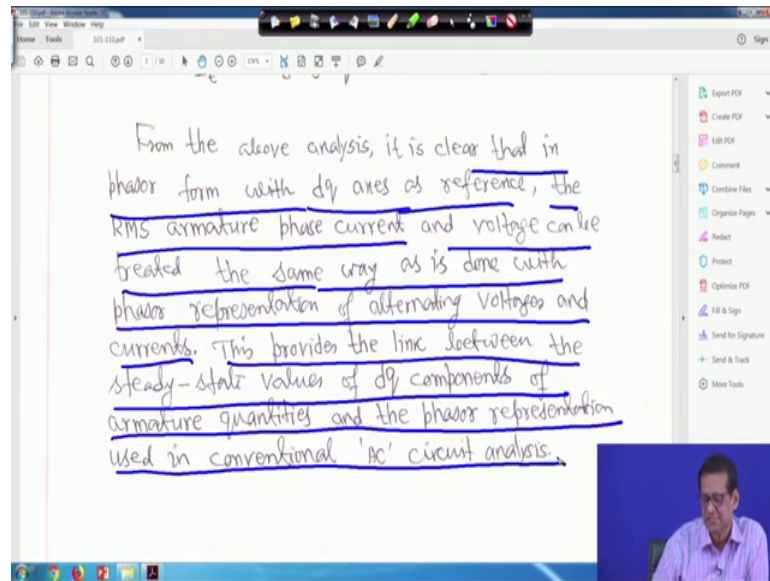 101-110.pdf - Adobe Acrobat Reader DC
File Edit View Window Help
Home Tools 101-110.pdf × Sign
2 / 10
From the above analysis, it is clear that in
phasor form with dq axes as reference, the
RMS armature phase current and voltage can be
treated the same way as is done with
phasor representation of alternating voltages and
currents. This provides the link between the
steady-state values of dq components of
armature quantities and the phasor representation
used in conventional 'AC' circuit analysis.
Export PDF
Create PDF
Edit PDF
Comment
Combine Files
Organize Pages
Redact
Protect
Optimize PDF
Fill & Sign
Send for Signature
Send & Track
More Tools